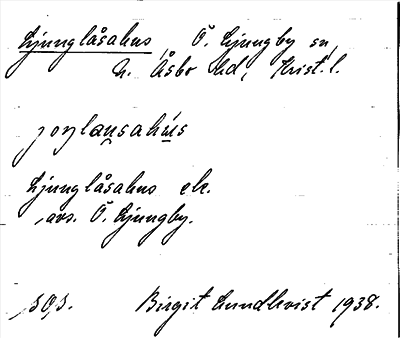 Ljunglåsahus, Ö. Ljungby sn,
N. Åsbo hd, Krist. l.
joŋlausahús
Ljunglåsahus ek.
avs. Ö. Ljungby.
Birgit Lundkvist 1938.